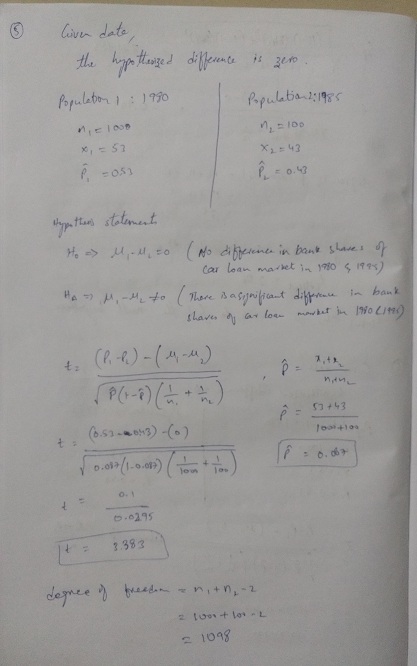 ⑤ Given data,
the hypothesized difference is zero.
Population 1 : 1980
n₁ = 1000
x₁ = 53
p̂₁ = 0.53
Population 2 : 1985
n₂ = 100
x₂ = 43
p̂₂ = 0.43
Hypothesis statements
H₀ => μ₁-μ₂ = 0 (No difference in bank shares of
car loan market in 1980 & 1985)
Hₐ => μ₁-μ₂ ≠ 0 (There is a significant difference in bank
shares of car loan market in 1980 & 1985)
t = (p̂₁-p̂₂) - (μ₁-μ₂) / √ p̂(1-p̂) (1/n₁ + 1/n₂) , p̂ = x₁+x₂ / n₁+n₂
p̂ = 53+43 / 1000+100
p̂ = 0.087
t = (0.53-0.43) - (0) / √ 0.087(1-0.087) (1/1000 + 1/100)
t = 0.1 / 0.0295
t = 3.383
degree of freedom = n₁ + n₂ - 2
= 1000 + 100 - 2
= 1098